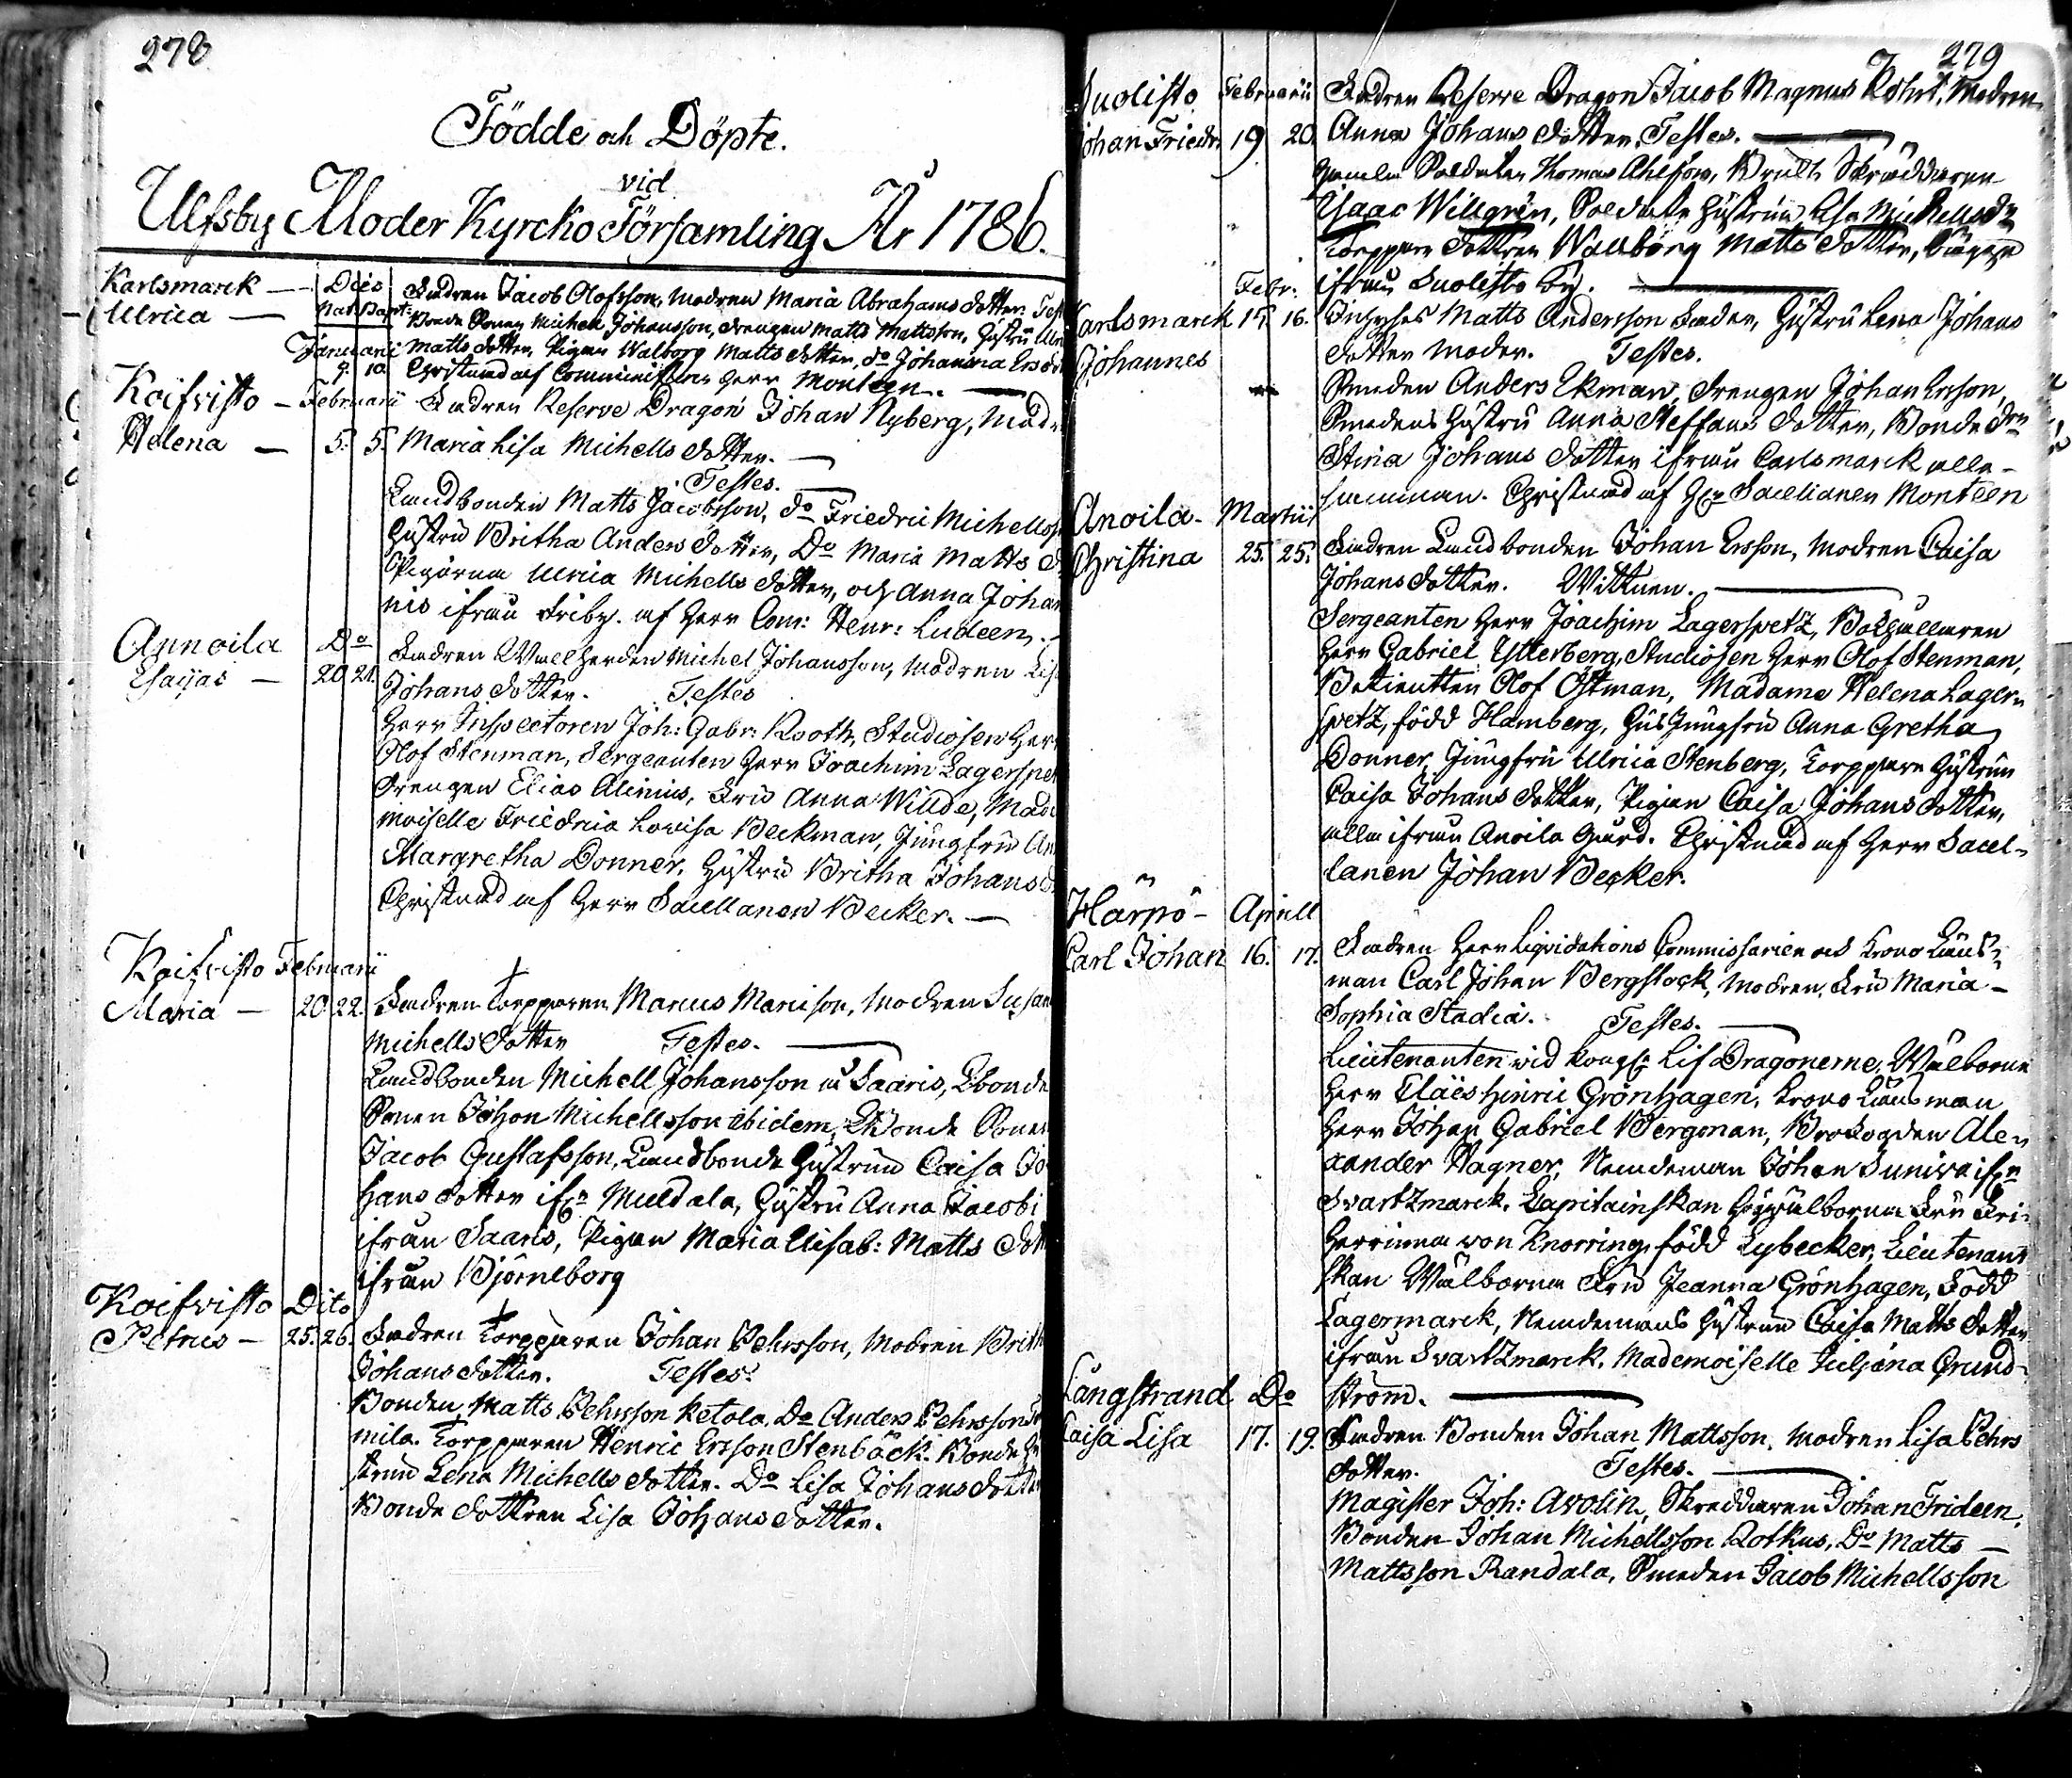 278
Födde och Döpte.
vid
Ulfsby Moder Kyrcko Församling År 1786.
Karlsmarck — Dies Fadren Jacob Olofsson, Modren Maria Abrahams dotter. Test
Ulrica — Nat: Bapt: Bonde Sonen Michell Johansson, drengen Matts Mattsson, Hustru
Januarii Matts dotter, Pigan Walborg Matts dotter, do Johanna Ers
9. 10. Christnad af Comministern Herr Monteen.
Koifvisto — Februarii Fadren Reserve Dragon Johan Nyberg, Mod
Helena — 5. 5. Maria Lisa Michells dotter.
Testes.
Landbonden Matts Jacobsson, do Friedric Michells
Hustru Britha Anders dotter, Do Maria Matts
Pigorna Ulrica Michells dotter, och Anna Johan
nis ifrån Friby. af Herr Com: Henr: Ludeen.
Annoila Do Fadren Wallherden Michel Johansson, Modren Lis
Esaijas — 20. 21. Johans dotter. Testes
Herr Inspectoren Joh: Gabr: Rooth, Studiosen Herr
Olof Stenman, Sergeanten Herr Joachim Lagerspe
drengen Elias Alenius, Fru Anna Willde, Mad
moiselle Friedrica Lovisa Beckman, Jungfru An
Margretha Donner, Hustru Britha Johans d
Christnad af Herr Sacellanen Becker.
Koifvisto Februarii
Maria — 20. 22. Fadren Torpparen Marcus Marcison, Modren Susan
Michells dotter Testes.
Landbonden Michell Johansson i Saaris, Lbonde
Sonen Johan Michellsson ibidem, Bonde Sonen
Jacob Gustafsson, Landbonde Hustrun Caisa Jo
hans dotter ifrn Muldala, Hustru Anna Jacobi
ifrån Saaris, Pigan Maria Elisab: Matts dott
ifrån Björneborg
Koifvisto Dito
Petrus — 25. 26. Fadren Torpparen Johan Pehrsson, Modren Brith
Johans dotter. Testes.
Bonden Matts Pehrsson Ketola, Do Anders Pehrsson
mila. Torpparen Henric Ersson Stenbäck. Bonde Hu
strun Lena Michells dotter. Do Lisa Johans dotter
Bonde dottren Lisa Johans dotter.
279
Suolisto Februarii Fadren Reserve Dragon Jacob Magnus Rohrt, Modren
Johan Friedr: 19 20. Anna Johans dotter. Testes.
gamla Soldaten Thomas Ahlfors, Skräddaren
Isaac Willgrén, Soldate Hustrun Lisa Michellsdr
Torppare dottren Wallborg Matts dotter,
ifrån Suolisto By.
Febr:
Karlsmarck 15. 16. Inhyses Matts Andersson Fader, Hustru Lena Johans
Johannes dotter Moder. Testes.
Smeden Anders Ekman, drengen Johan Ersson,
Smedens Hustru Anna Steffans dotter, Bonde drn
Stina Johans dotter ifrån Carlsmarck alle-
samman. Christnad af Hr Sacellanen Monteen
Anoila - Martii
Christina 25. 25. Fadren Landbonden Johan Ersson, Modren Caisa
Johans dotter. Wittnen.
Sergeanten Herr Joachim Lagerspetz, Bokhållaren
Herr Gabriel Ytterberg, Studiosen Herr Olof Stenman,
Betienten Olof Östman, Madame Helena Lager-
spetz, född Hamberg, Hus Jungfru Anna Gretha
Donner, Jungfru Ulrica Stenberg, Torppare Hustrun
Caisa Johans dotter, Pigan Caisa Johans dotter,
alla ifrån Anoila Gård. Christnad af Herr Sacel-
lanen Johan Becker.
Harpö - Aprill
Carl Johan 16. 17. Fadren Herr Liqvidations Commissarien och Krono Läns-
man Carl Johan Bergstock, Modren, Fru Maria
Sophia Stadia. Testes.
Lieutenanten wid Kongl: Lif Dragonerne, Wälborne
Herr Claës Hinric Grönhagen, Krono Länsman
Herr Johan Gabriel Bergman, Brofogden Ale-
xander Wagner, Nemdeman Johan Suniva ifrn
Svartzmarck. Capitainskan Högwälborna Fru Fri-
herrinna von Knorring, född Lybecker, Lieutenans
skan Wälborna Fru Jeanna Grönhagen, Född
Lagermarck, Nemdemans Hustrun Caisa Matts dotter
ifrån Svartzmarck. Mademoiselle Juljana Grund-
ström.
Långstrand Do
Caisa Lisa 17. 19. Fadren Bonden Johan Mattsson, Modren Lisa Pehrs
dotter. Testes.
Magister Joh: Avolin, Skreddaren Johan Frideen,
Bonden Johan Michellsson Rotkus, Do Matts
Mattsson Randala, Smeden Jacob Michellsson